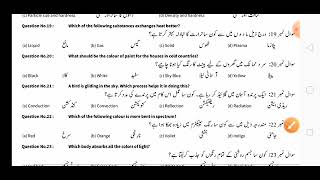 (c) Particle size and hardness (d) Density and hardness
Question No.19: Which of the following substances exchanges heat better?
سوال نمبر 19: درج ذیل مادوں میں سے کون سا حرارت کا تبادلہ بہتر کرتا ہے؟
(a) Liquid مائع (b) Gas گیس (c) Solid ٹھوس (d) Plasma پلازما
Question No.20: What should be the colour of paint for the houses in cold countries?
سوال نمبر 20: سرد ممالک میں گھروں کے لیے پینٹ کا رنگ کیا ہونا چاہیے؟
(a) Black کالا (b) White سفید (c) Sky Blue آسمانی نیلا (d) Yellow پیلا
Question No.21: A bird is gliding in the sky. Which process helps it in doing this?
سوال نمبر 21: ایک پرندہ آسمان میں گلائیڈ کر رہا ہے۔ کون سا عمل اس کام میں پرندے کی مدد کرتا ہے؟
(a) Conduction کنڈکشن (b) Convection کنویکشن (c) Reflection ریفلیکشن (d) Radiation ریڈی ایشن
Question No.22: Which of the following colour is more bent in spectrum?
سوال نمبر 22: مندرجہ ذیل میں سے کون سا رنگ سپیکٹرم میں زیادہ جھکا ہوا ہے؟
(a) Red سرخ (b) Orange نارنجی (c) Violet بنفشی (d) Indigo جامنی
Question No.23: Which body absorbs all the colors of light?
سوال نمبر 23: کون سا جسم روشنی کے تمام رنگوں کو جذب کر لیتا ہے؟